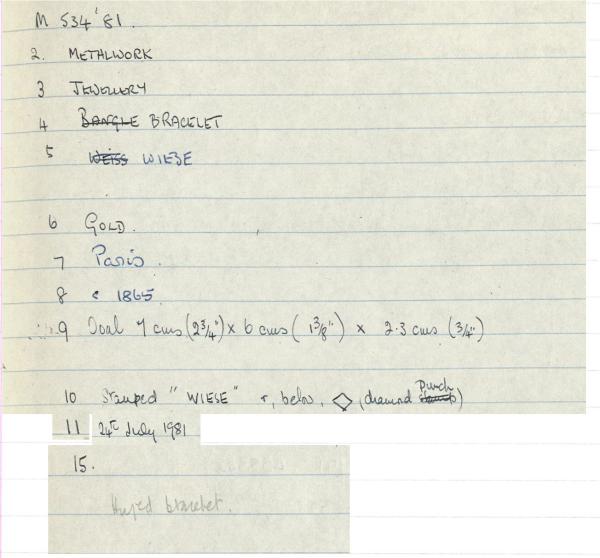 M 534'81.
2. METALWORK
3 JEWELLERY
4 BANGLE BRACELET
5 WEISS WIESE
6 GOLD.
7 Paris.
8 c 1865.
9 Oval 7 cms (2 3/4") x 6 cms (1 3/8") x 2.3 cms (3/4")
10 Stamped "WIESE" +, below, ◇, (diamond stamp punch)
11 24th July 1981
15.
Hinged bracelet.